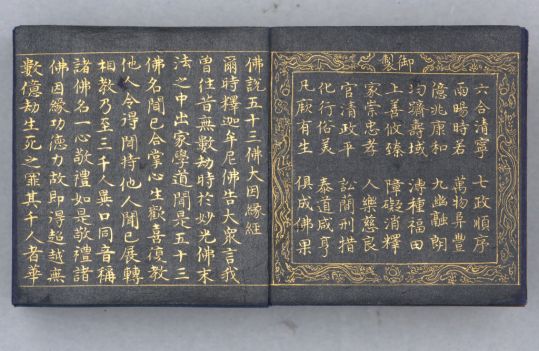 御製
六合清寧 七政順序
雨暘時若 萬物阜豐
億兆康和 九幽融朗
均躋壽域 溥種福田
上善攸臻 障礙消釋
家崇忠孝 人樂慈良
官清政平 訟簡刑措
化行俗美 泰道咸亨
凡厥有生 俱成佛果
佛說五十三佛大因緣經
爾時釋迦牟尼佛告大眾言我
曾往昔無數劫時於妙光佛末
法之中出家學道聞是五十三
佛名聞已合掌心生歡喜復教
他人令得聞持他人聞已展轉
相教乃至三千人異口同音稱
諸佛名一心敬禮如是敬禮諸
佛因緣功德力故即得超越無
數億劫生死之罪其千人者華